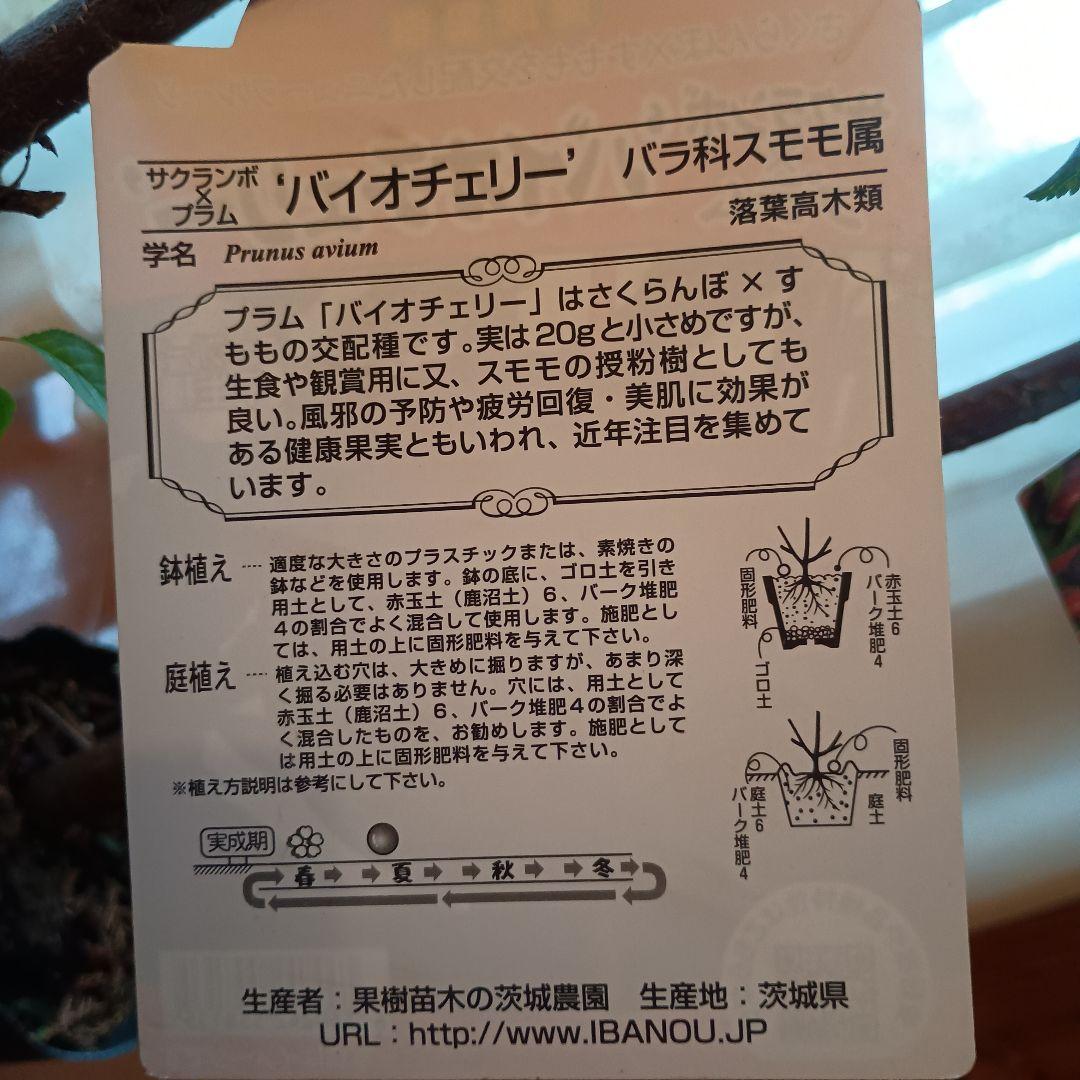 サクランボ
×
プラム
‘バイオチェリー’ バラ科スモモ属
落葉高木類
学名 Prunus avium
プラム「バイオチェリー」はさくらんぼ×す
ももの交配種です。実は20gと小さめですが、
生食や観賞用に又、スモモの授粉樹としても
良い。風邪の予防や疲労回復・美肌に効果が
ある健康果実ともいわれ、近年注目を集めて
います。
鉢植え ---- 適度な大きさのプラスチックまたは、素焼きの
鉢などを使用します。鉢の底に、ゴロ土を引き
用土として、赤玉土（鹿沼土）6、バーク堆肥
4の割合でよく混合して使用します。施肥とし
ては、用土の上に固形肥料を与えて下さい。
庭植え ---- 植え込む穴は、大きめに掘りますが、あまり深
く掘る必要はありません。穴には、用土として
赤玉土（鹿沼土）6、バーク堆肥4の割合でよ
く混合したものを、お勧めします。施肥として
は用土の上に固形肥料を与えて下さい。
※植え方説明は参考にして下さい。
固形肥料
赤玉土6
バーク堆肥4
ゴロ土
固形肥料
庭土
庭土6
バーク堆肥4
実成期
春 夏 秋 冬
生産者：果樹苗木の茨城農園 生産地：茨城県
URL：http://www.IBANOU.JP